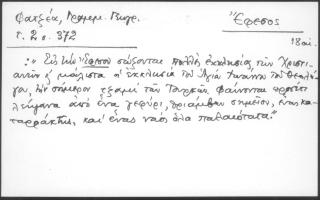 Φατζέα, Γραμμ. Γεωγρ.
Ἔφεσος
τ. 2 σ. 372
18 αἰ.
: " Εἰς τὴν Ἔφεσον σώζονται πολλαὶ ἐκκλησίαι τῶν Χριστι-
ανῶν καὶ μάλιστα ἡ ἐκκλησία τοῦ Ἁγίου Ἰωάννου τοῦ Θεολό-
γου, τὴν σήμερον τζαμὶ τῶν Τουρκῶν. Φαίνονται προσέτι
λείψανα ἀπὸ ἕνα γεφύρι, θριάμβου σημεῖον, ἕνας κα-
ταρράκτης, καὶ ἕνας ναὸς ὅλα παλαιότατα."